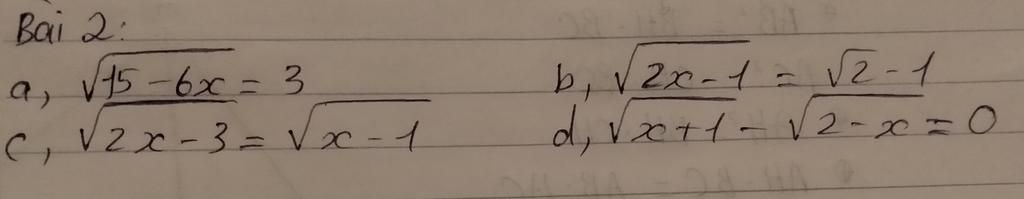 Bài 2:
a, √15-6x = 3 b, √2x-1 = √2-1
c, √2x-3 = √x-1 d, √x+1 - √2-x = 0